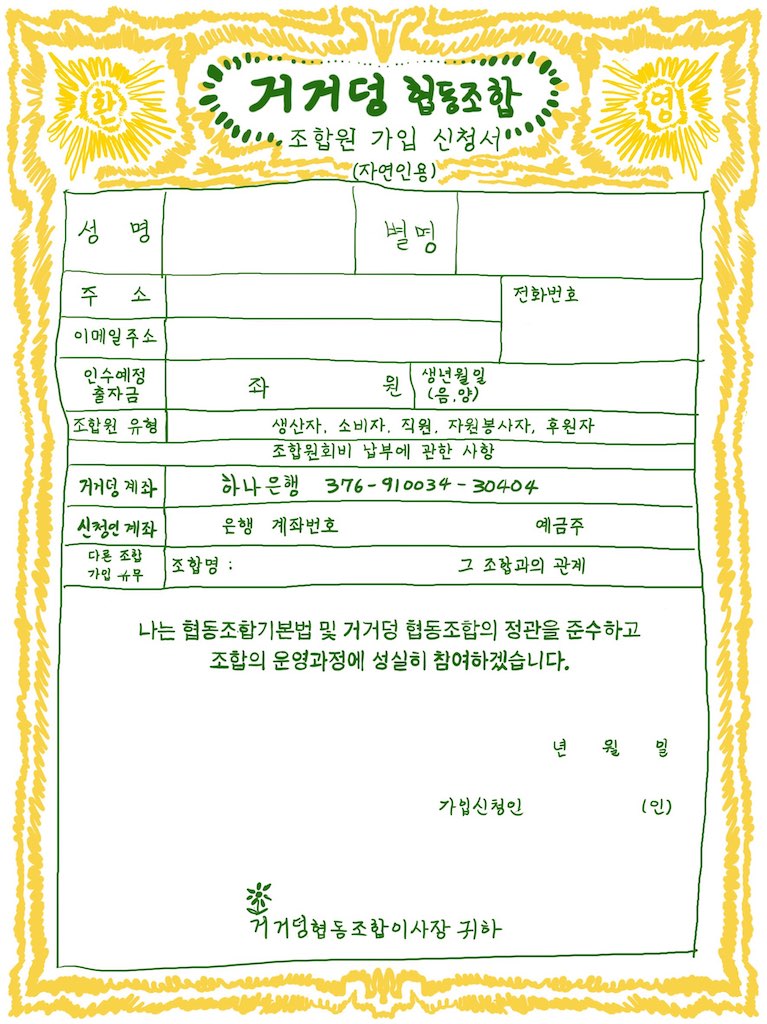 환
영
거거덩 협동조합
조합원 가입 신청서
(자연인용)
성 명
별명
주 소
전화번호
이메일주소
인수예정
출자금
좌 원
생년월일
(음,양)
조합원 유형
생산자, 소비자, 직원, 자원봉사자, 후원자
조합원회비 납부에 관한 사항
거거덩 계좌
하나은행 376-910034-30404
신청인 계좌
은행 계좌번호 예금주
다른 조합
가입 유무
조합명 : 그 조합과의 관계
나는 협동조합기본법 및 거거덩 협동조합의 정관을 준수하고
조합의 운영과정에 성실히 참여하겠습니다.
년 월 일
가입신청인 (인)
거거덩협동조합이사장 귀하